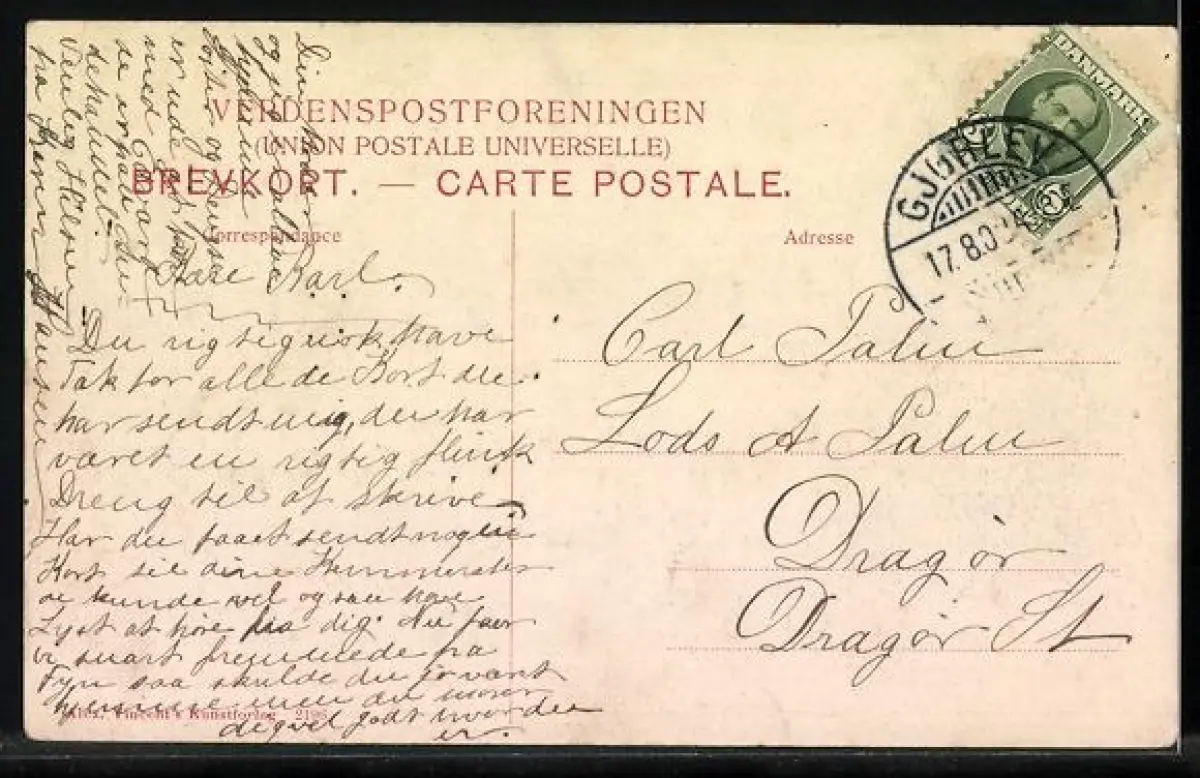 VERDENSPOSTFORENINGEN
(UNION POSTALE UNIVERSELLE)
BREVKORT. — CARTE POSTALE.
Correspondance
Adresse
DANMARK
GJØRLEV
17.8.0
Kære Karl.
Du rigtig nok have
Tak for alle de Kort du
har sendt mig, du har
været en rigtig flink
Dreng til at skrive
Har du faaet sendt nogle
Kort til dine Kammerater
de kunde vel ogsaa have
Lyst at høre fra dig. Nu faar
vi snart fremmede fra
Fyn saa skulde du jo været
hjemme men du morer
dig vel godt hvor du
er.
Din Moder
og
er ude
med Edvard
Venlig Hilsen
fra Hansen
Carl Palm
Lods A Palm
Dragør
Dragør St
Alex. Vincent's Kunstforlag